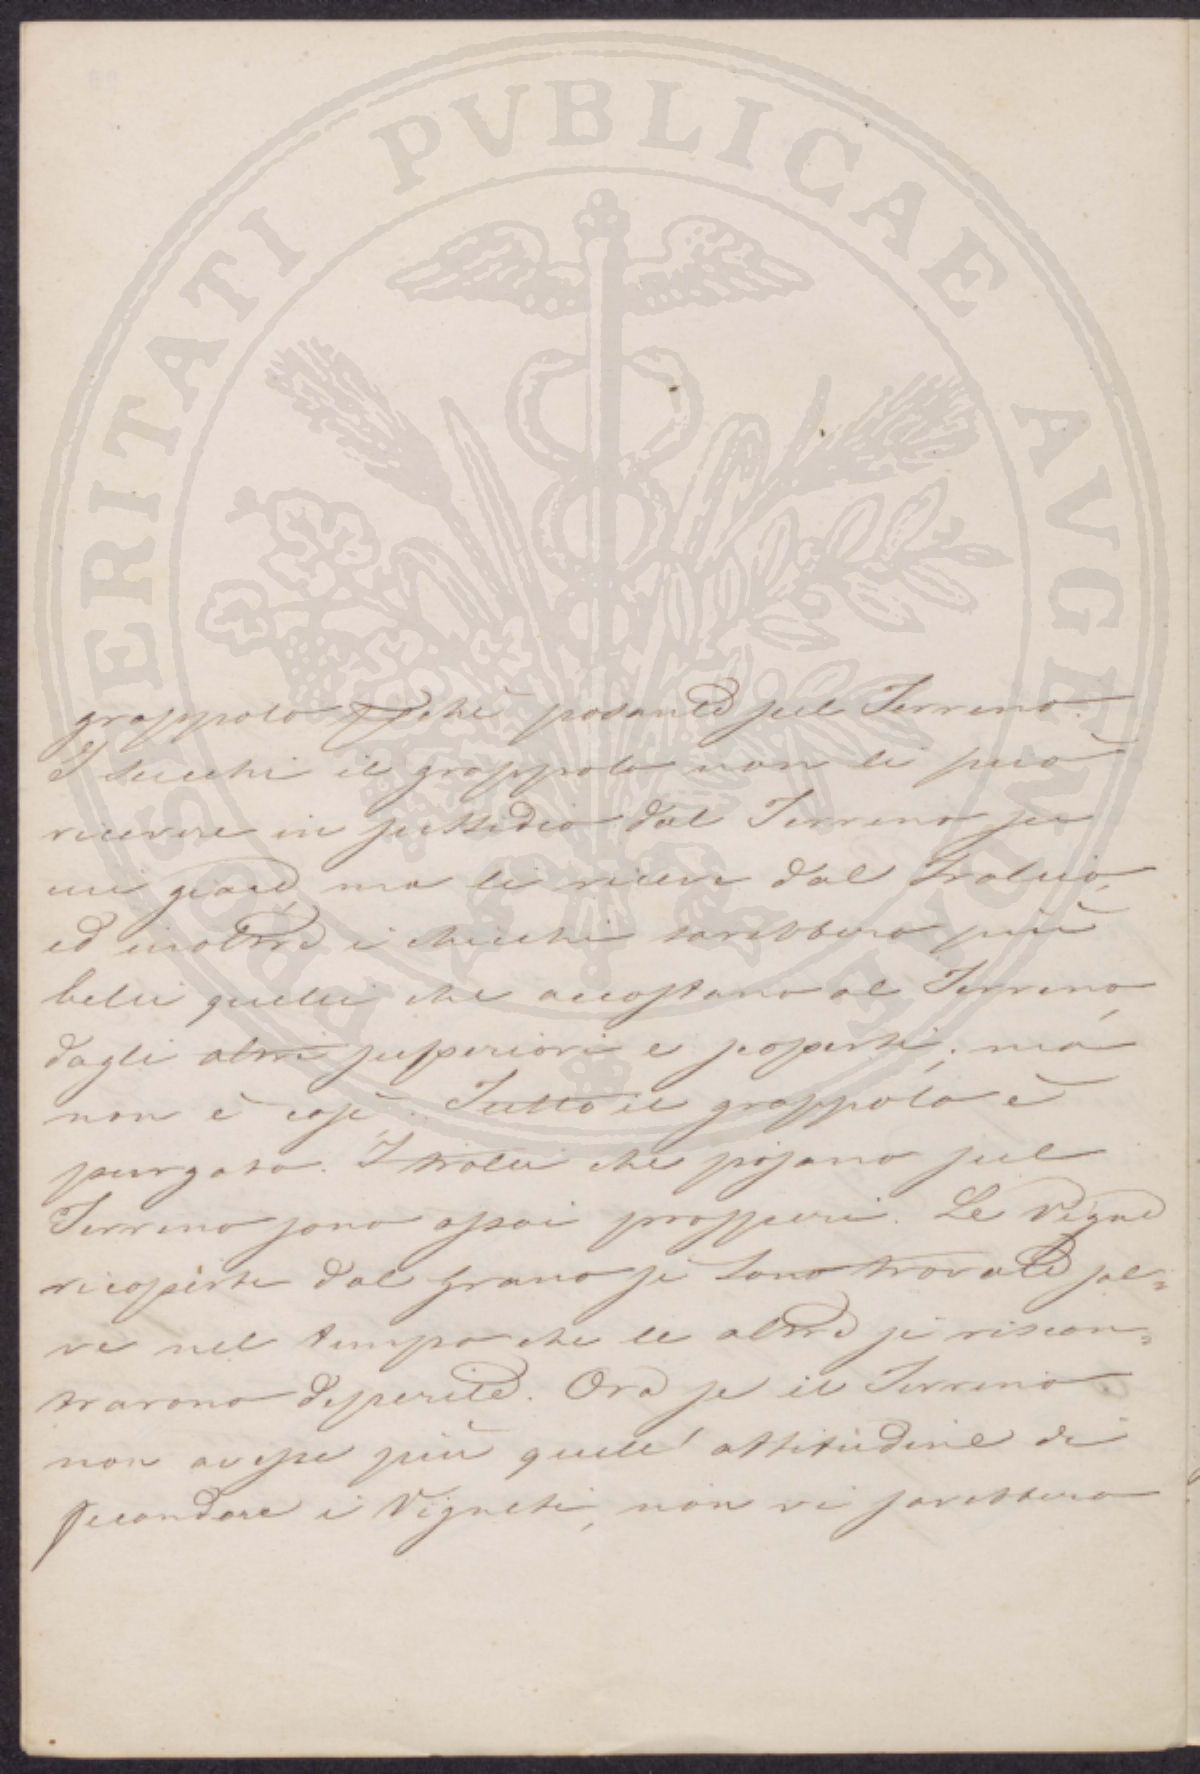 PROSPERITATI PVBLICAE AVGENDAE
grappolo perché posante sul Terreno.
I succhi il grappolo non li può
ricevere in sussidio dal Terreno su
cui giace, ma li riceve dal Tralcio,
ed inoltre i chicchi sarebbero più
belli quelli che accostano al Terreno
dagli altri superiori e scoperti; ma
non è così. Tutto il grappolo è
purgato. I tralci che posano sul
Terreno sono assai prosperi. Le Vigne
ricoperte dal grano si sono trovate sal=
ve nel tempo che le altre si riscon=
trarono deperite. Ora se il Terreno
non avesse più quell' attitudine di
fecondare i Vigneti, non vi sarebbero